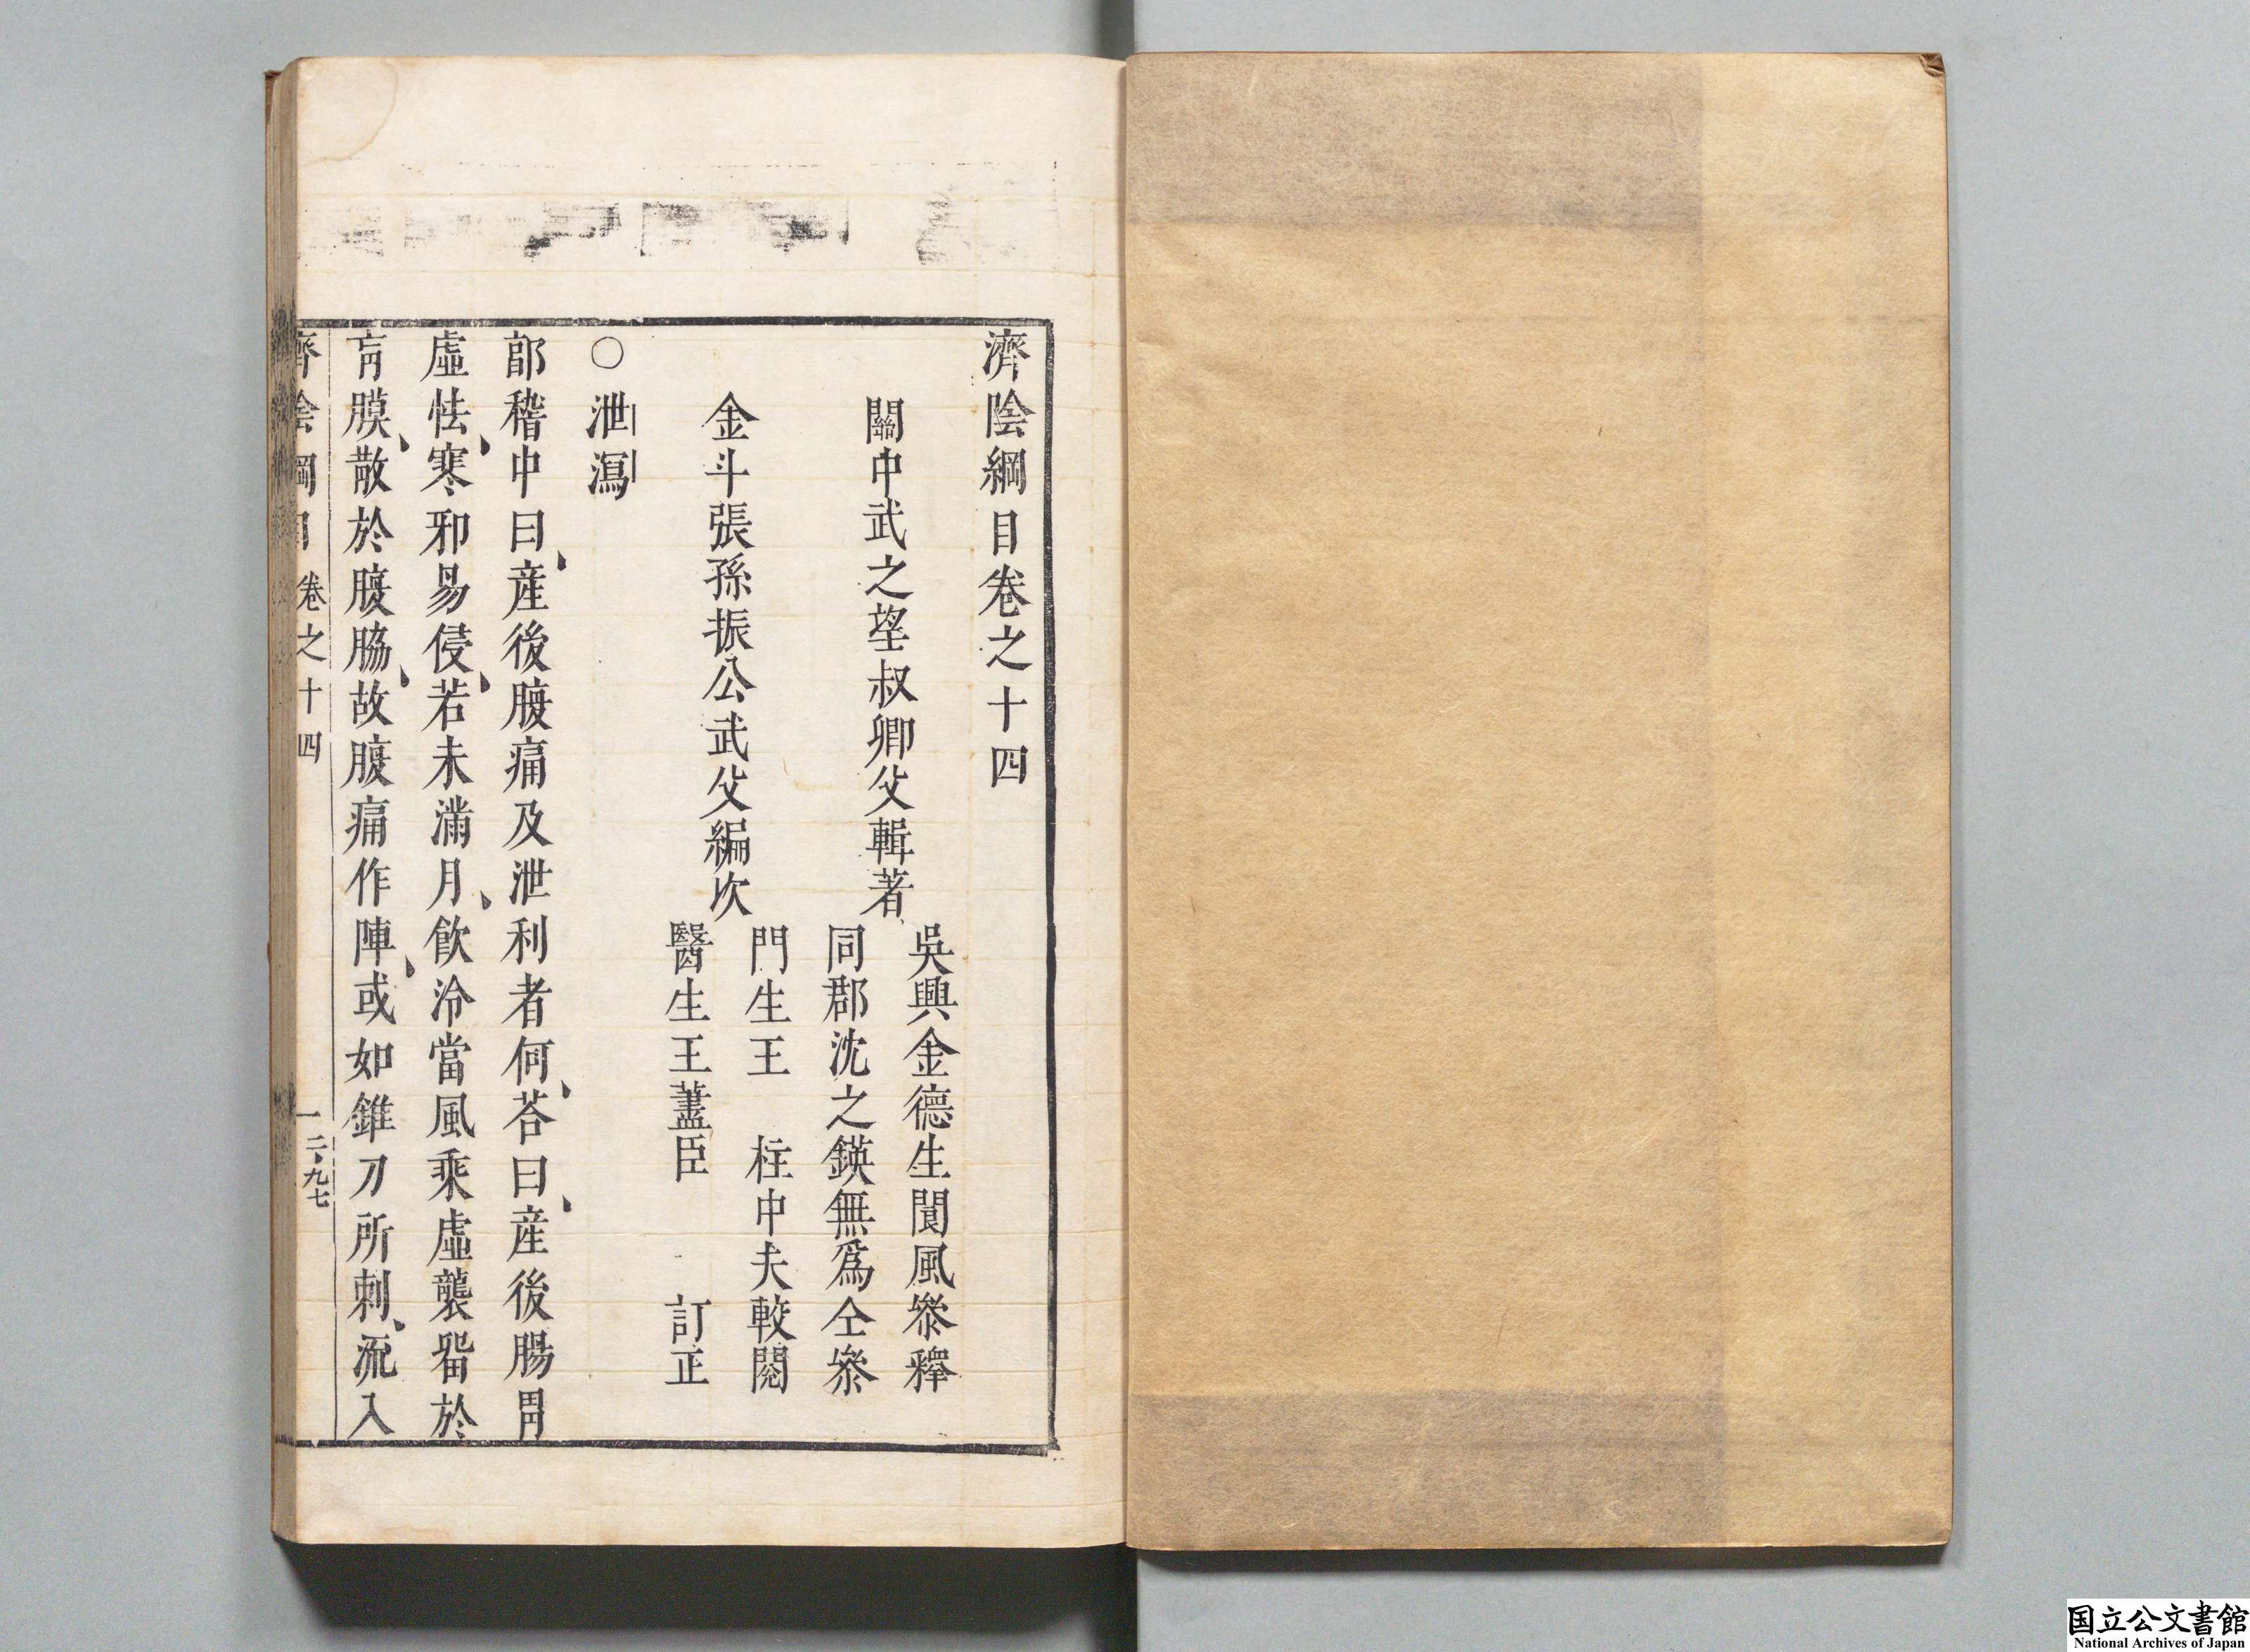 濟陰綱目卷之十四
關中武之望叔卿父輯著
吳興金德生閬風叅釋
同郡沈之鍈無爲仝叅
金斗張孫振公武父編次
門生王 柱中夫較閱
醫生王藎臣 訂正
○泄瀉
郎稽中曰産後腹痛及泄利者何荅曰産後腸胃
虛怯寒邪易侵若未滿月飮冷當風乘虛襲畱於
肓膜散於腹脇故腹痛作陣或如錐刀所刺流入
濟陰綱目 卷之十四 一 二九七
国立公文書館
National Archives of Japan